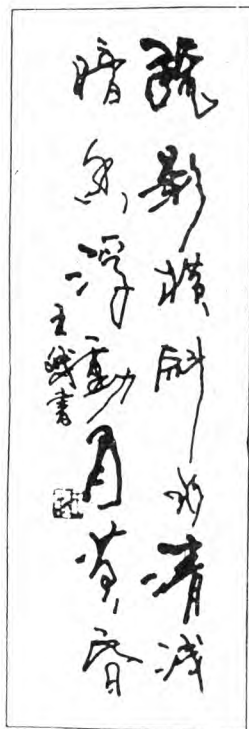 疏影横斜水清浅
暗香浮動月黄昏
王書